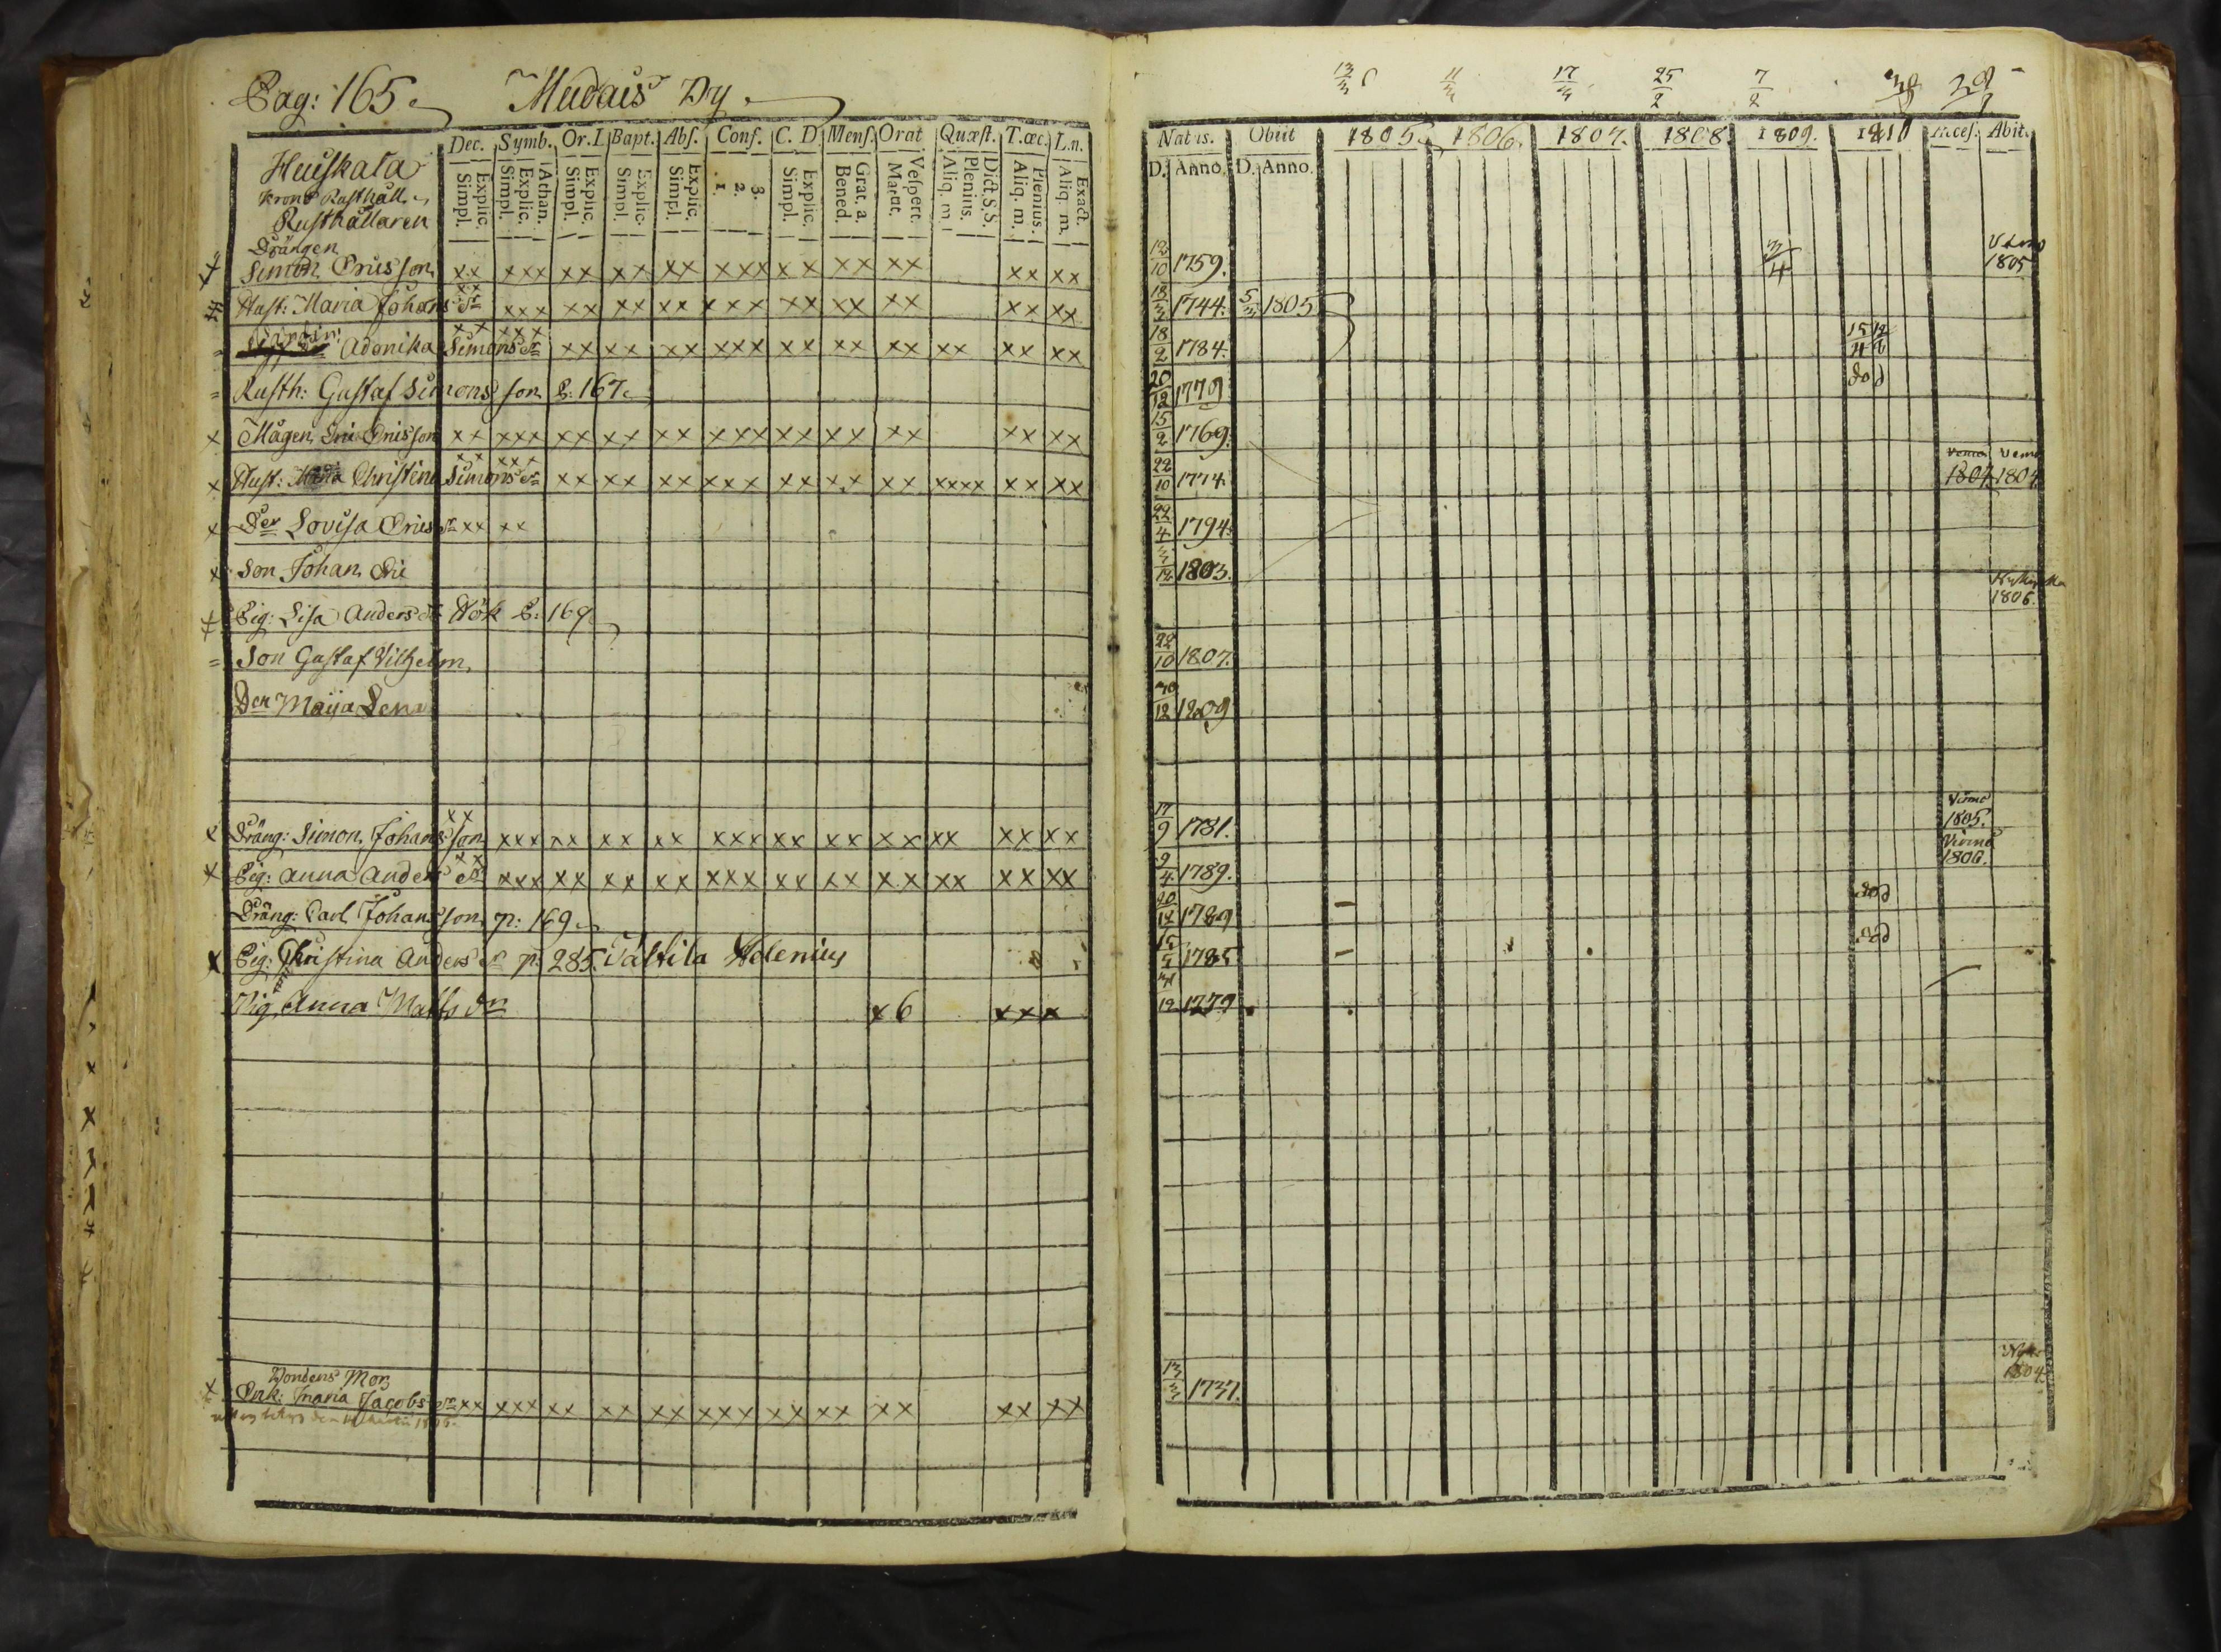 Pag: 165. Mudais By
Dec. Symb. Or. I. Bapt. Abs. Conf. C. D. Mens. Orat Quæst. T. œc. L. n.
Explic. Simpl. Athan. Explic. Simpl. Explic. Simpl. Explic. Simpl. Explic. Simpl. 3. 2. 1. Explic. Simpl. Grat. a. Bened. Vespert. Matut. Dict. S. S. Plenius. Aliq. m. Plenius. Aliq. m. Exact. Aliq. m.
Huiskala
Krono Rusthåll
Rusthållaren
Drängen
Simon Ericsson xx xxx xx xx xx xxx xx xx xx xx xx
Hust: Maria Johans dr xx xxx xx xx xx xxx xx xx xx xx xx
Adonika Simons dr xx xxx xx xx xx xxx xx xx xx xx xx xx
Rusth: Gustaf Simonsson P. 167.
Mågen Eric Ericsson xx xxx xx xx xx xxx xx xx xx xx xx
Hust: Christina Simons dr xx xxx xx xx xx xxx xx xx xx xxxx xx xx
Der Lovisa Erics dr xx xx
Son Johan Eric
Pig: Lisa Anders dr P. 169
Son Gustaf Vilhelm
Der Maija Lena
Dräng: Simon Johansson xx xxx xx xx xx xxx xx xx xx xx xx xx
Pig: Anna Anders dr xx xxx xx xx xx xxx xx xx xx xx xx xx
Dräng: Carl Johansson p. 169
Pig: Christina Anders dr p. 285. Tåltila Helenius
Pig. Anna Matts dr x6 xxx
Bondens Mor
Enk: Maria Jacobs dr xx xxx xx xx xx xxx xx xx xx xx xx
13/3 11/3 17/3 25/2 7/2
Natus. Obiit 1805. 1806. 1807. 1808. 1809. 1810 Acces. Abit.
D. Anno. D. Anno.
12/10 1759. 3/4 1805
18/3 1744. 5/3 1805
18/2 1784. 15/4
20/12 1779
15/2 1769.
22/10 1774. 1804 1804
22/4 1794.
3/12 1803.
1806.
22/10 1807.
30/12 1809
17/9 1781. Virmo 1805.
9/4 1789. Virmo 1806.
20/12 1789
15/2 1785
12 1779
13/3 1737. 1804.